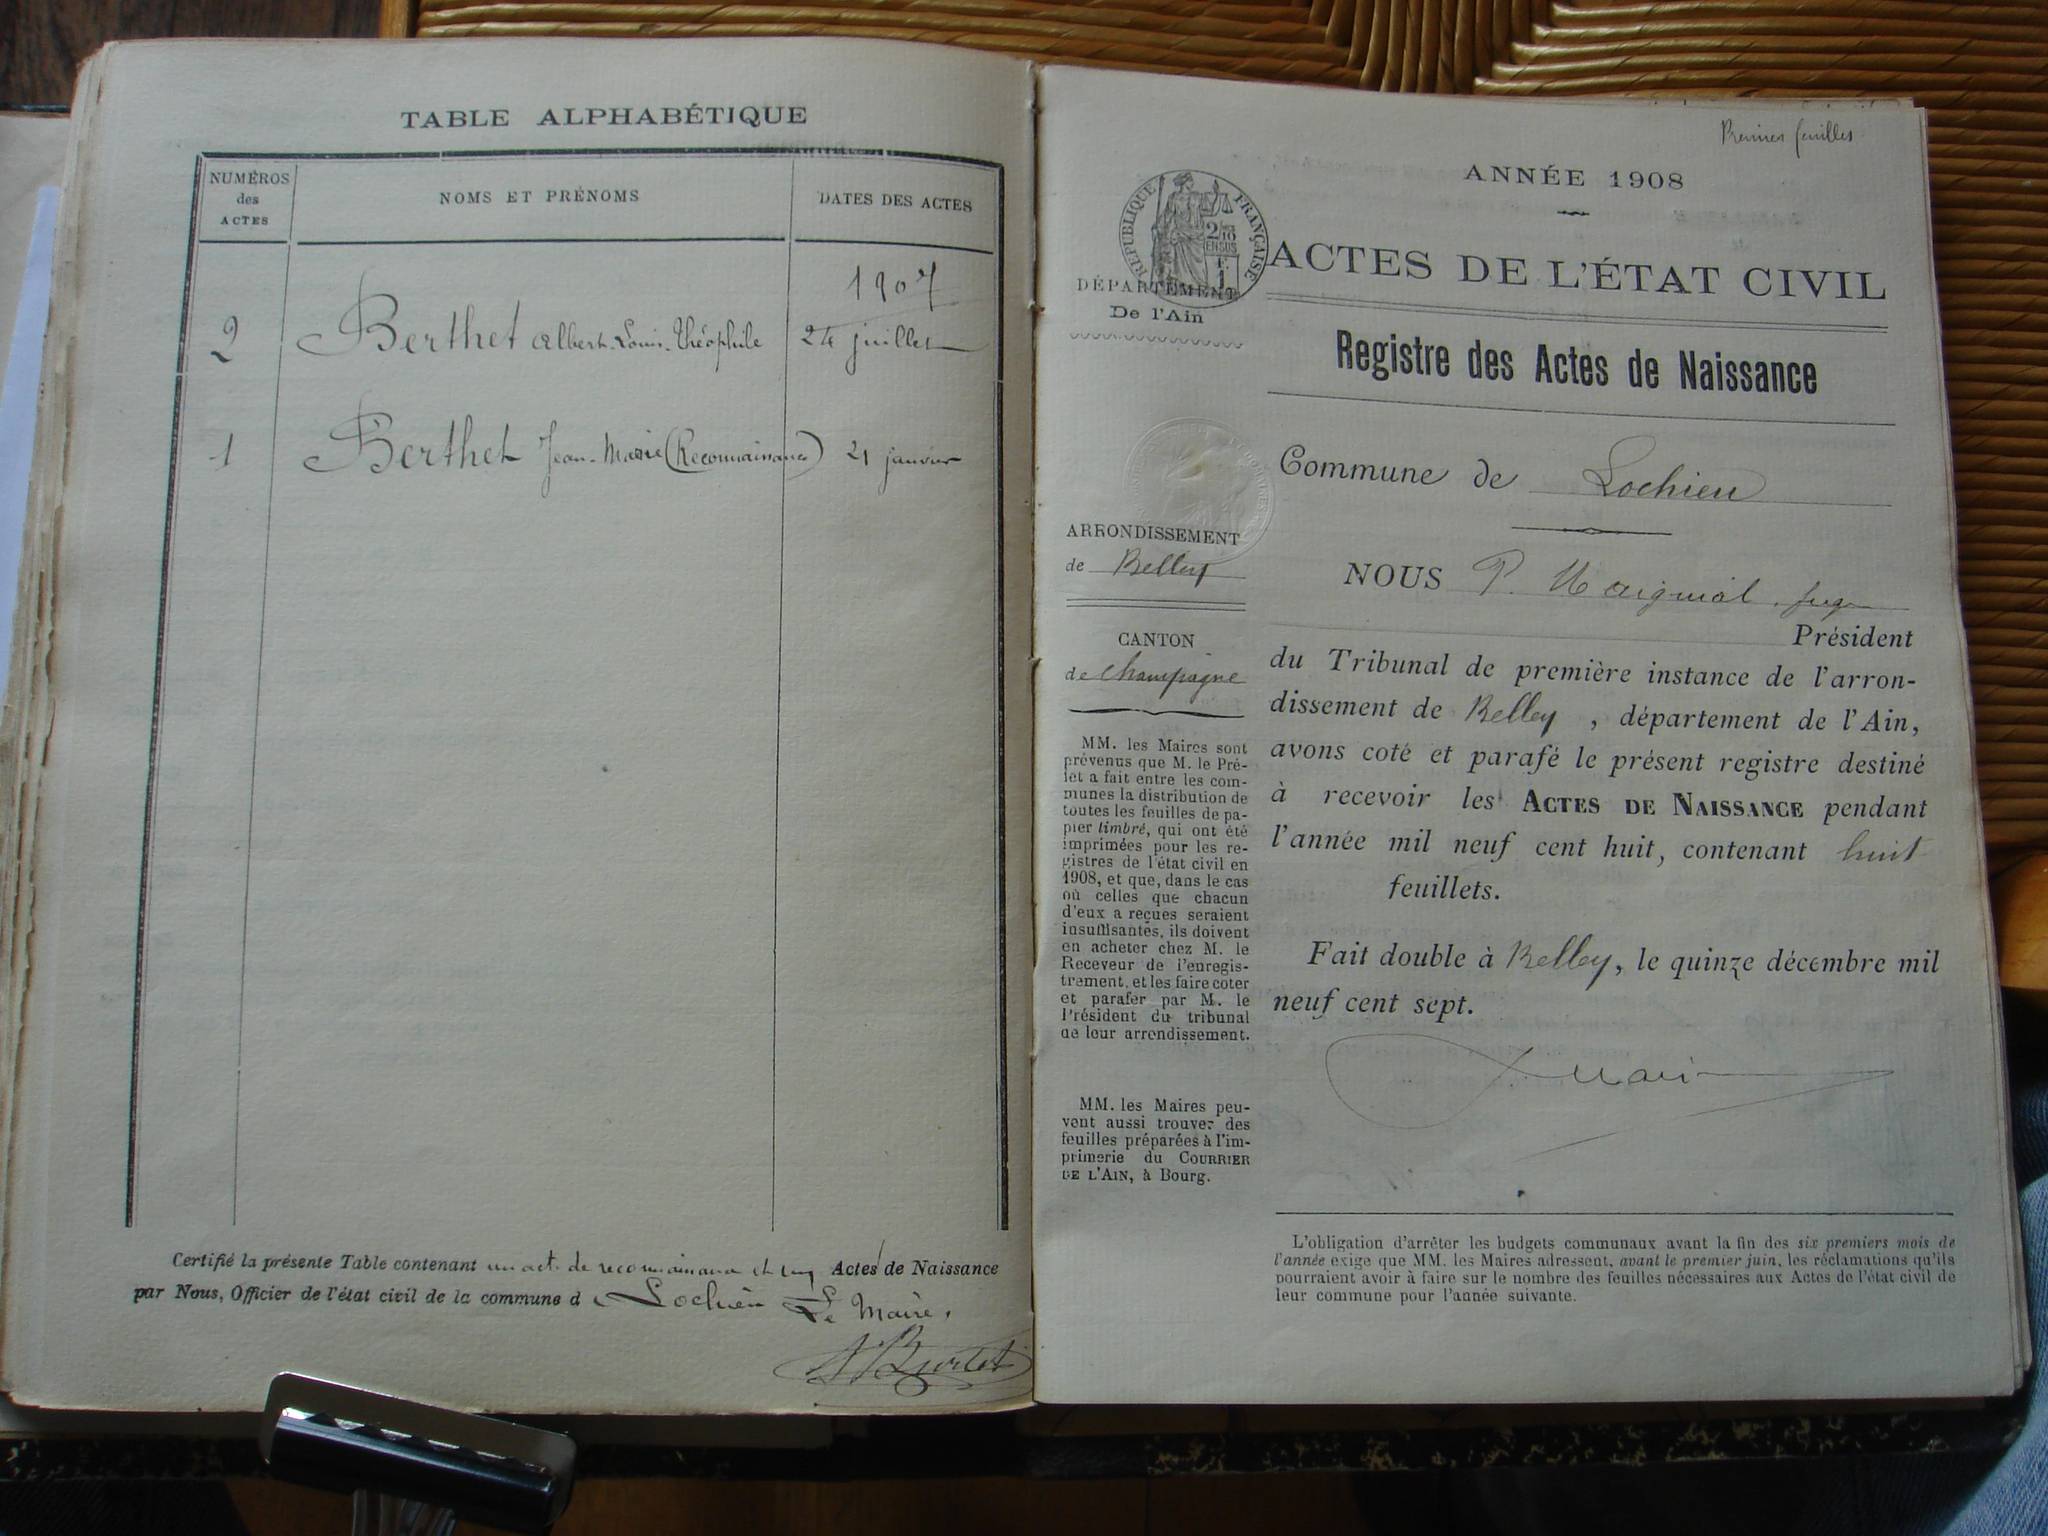 TABLE ALPHABÉTIQUE
NUMÉROS
des
ACTES
NOMS ET PRÉNOMS
DATES DES ACTES
1907
2 Berthet Albert-Louis-Théophile 24 juillet
1 Berthet Jean-Marie (Reconnaissance) 21 janvier
Certifié la présente Table contenant un acte de reconnaissance et un Actes de Naissance
par Nous, Officier de l'état civil de la commune d Lochieu Le Maire,
Premières feuilles
ANNÉE 1908
RÉPUBLIQUE FRANÇAISE
2/10
EN SUS
ACTES DE L'ÉTAT CIVIL
DÉPARTEMENT
De l'Ain
Registre des Actes de Naissance
Commune de Lochieu
ARRONDISSEMENT
de Belley
CANTON
de Champagne
MM. les Maires sont
prévenus que M. le Pré-
fet a fait entre les com-
munes la distribution de
toutes les feuilles de pa-
pier timbré, qui ont été
imprimées pour les re-
gistres de l'état civil en
1908, et que, dans le cas
où celles que chacun
d'eux a reçues seraient
insuffisantes, ils doivent
en acheter chez M. le
Receveur de l'enregis-
trement, et les faire coter
et parafer par M. le
Président du tribunal
de leur arrondissement.
MM. les Maires peu-
vent aussi trouver des
feuilles préparées à l'im-
primerie du COURRIER
DE L'AIN, à Bourg.
NOUS P. juge
Président
du Tribunal de première instance de l'arron-
dissement de Belley, département de l'Ain,
avons coté et parafé le présent registre destiné
à recevoir les ACTES DE NAISSANCE pendant
l'année mil neuf cent huit, contenant huit
feuillets.
Fait double à Belley, le quinze décembre mil
neuf cent sept.
L'obligation d'arrêter les budgets communaux avant la fin des six premiers mois de
l'année exige que MM. les Maires adressent, avant le premier juin, les réclamations qu'ils
pourraient avoir à faire sur le nombre des feuilles nécessaires aux Actes de l'état civil de
leur commune pour l'année suivante.